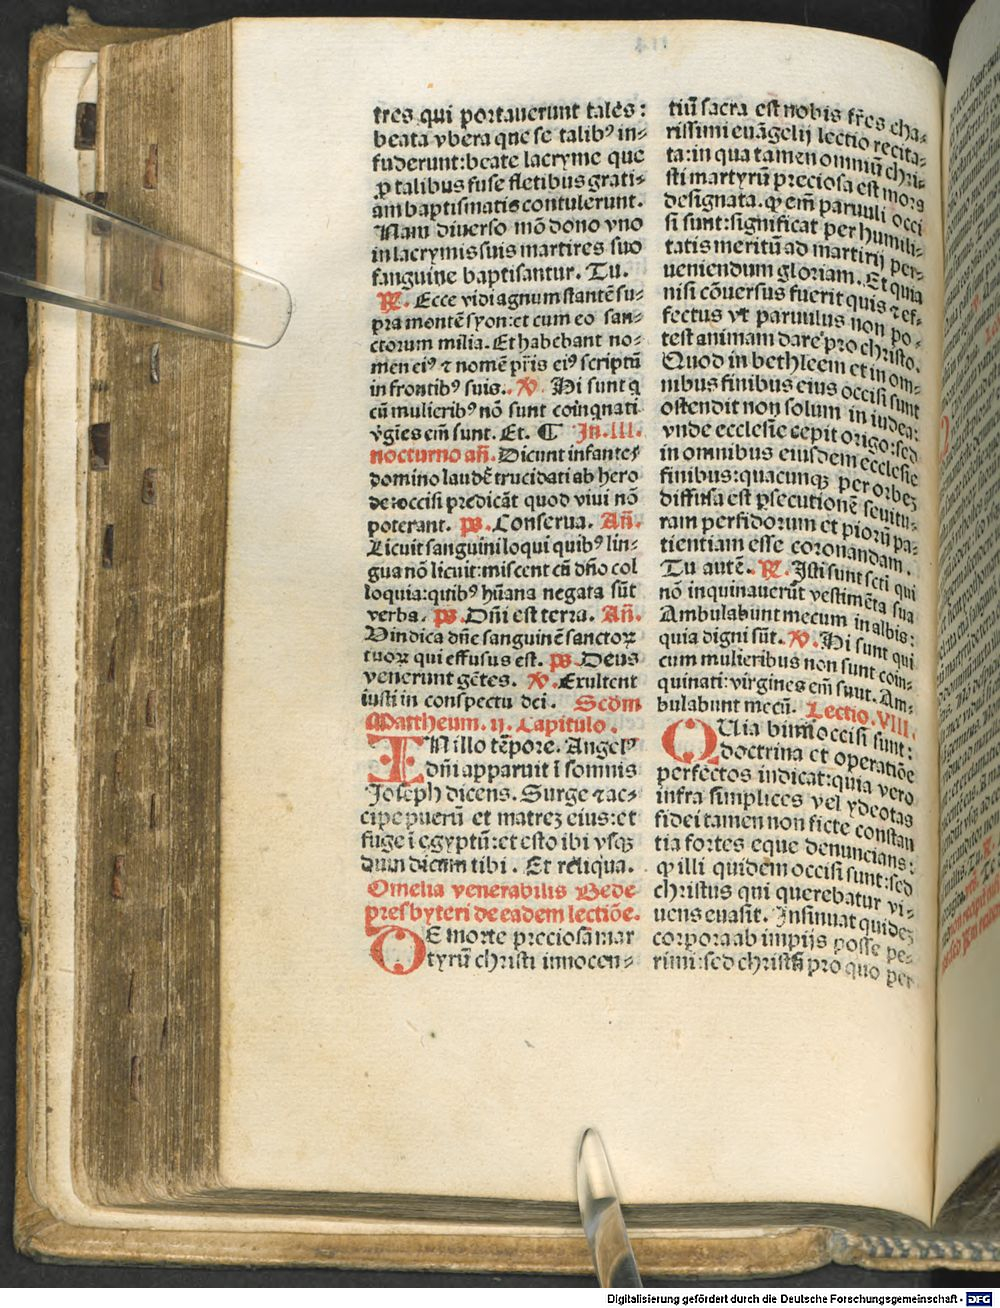 tres qui portauerunt tales:
beata vbera que se talibꝰ in⸗
fuderunt:beate lacryme que
ꝓ talibus fuse fletibus grati⸗
am baptismatis contulerunt.
Nam diuerso mō dono vno
in lacrymis suis martires suo
sanguine baptisantur. Tu.
℞. Ecce vidi agnum stantē su⸗
pra montē syon:et cum eo san⸗
ctorum milia. Et habebant no⸗
men eiꝰ ⁊ nomē pr̄is eiꝰ scriptū
in frontibꝰ suis. ℣. Hi sunt q
cū mulieribꝰ nō sunt coinqnati
v̄gīes em̄ sunt. Et. ¶ In.III.
nocturno an̄. Dicunt infantes
domino laudē trucidati ab hero
de:occisi predicāt quod viui nō
poterant. ps. Conserua. An̄.
Licuit sanguini loqui quibꝰ lin⸗
gua nō licuit:miscent cū dn̄o col
loquia:quibꝰ hūana negata sūt
verba. ps. Dn̄i est terra. An̄.
Vindica dn̄e sanguinē sanctoꝝ
tuoꝝ qui effusus est. ps. Deus
venerunt gētes. ℣. Exultent
iusti in conspectu dei. Scdm
Mattheum. ij. Capitulo.
IN illo tēpore. Angelꝰ
dn̄i apparuit ī somnis
Joseph dicens. Surge ⁊ ac⸗
cipe puerū et matreꝫ eius:et
fuge ī egyptū:et esto ibi vsqꝫ
dum dicam tibi. Et reliqua.
Omelia venerabilis Bede
presbyteri de eadem lectiōe.
DE morte preciosa mar
tyrū christi innocen⸗
tiū sacra est nobis fr̄es cha⸗
rissimi euāgelij lectio recita⸗
ta:in qua tamen omniū chri⸗
sti martyrū preciosa est mors
designata. ꝙ em̄ paruuli occi
si sunt:significat per humili⸗
tatis meritū ad martirij per⸗
ueniendum gloriam. Et quia
nisi cōuersus fuerit quis ⁊ ef⸗
fectus vt paruulus non po⸗
test animam dare pro christo.
Quod in bethleem et in om⸗
nibus finibus eius occisi sunt
ostendit non solum in iudea:
vnde ecclesie cepit origo:sed
in omnibus eiusdem ecclesie
finibus:quacunqꝫ per orbeꝫ
diffusa est ꝑsecutionē seuitu⸗
ram perfidorum et piorū pa⸗
tientiam esse coronandam.
Tu autē. ℞. Isti sunt scti qui
nō inquinauerūt vestimēta sua
Ambulabunt mecum in albis:
quia digni sūt. ℣. Hi sunt qui
cum mulieribus non sunt coin⸗
quinati:virgines em̄ sunt. Am⸗
bulabunt mecū. Lectio.VIII.
QUia bimi occisi sunt:
doctrina et operatiōe
perfectos indicat:quia vero
infra simplices vel ydeotas
fidei tamen non ficte constan
tia fortes eque denuncians:
ꝙ illi quidem occisi sunt:sed
christus qui querebatur vi⸗
uens euasit. Insinuat quideꝫ
corpora ab impijs posse pe⸗
rimi:sed christū pro quo per
Digitalisierung gefördert durch die Deutsche Forschungsgemeinschaft - DFG